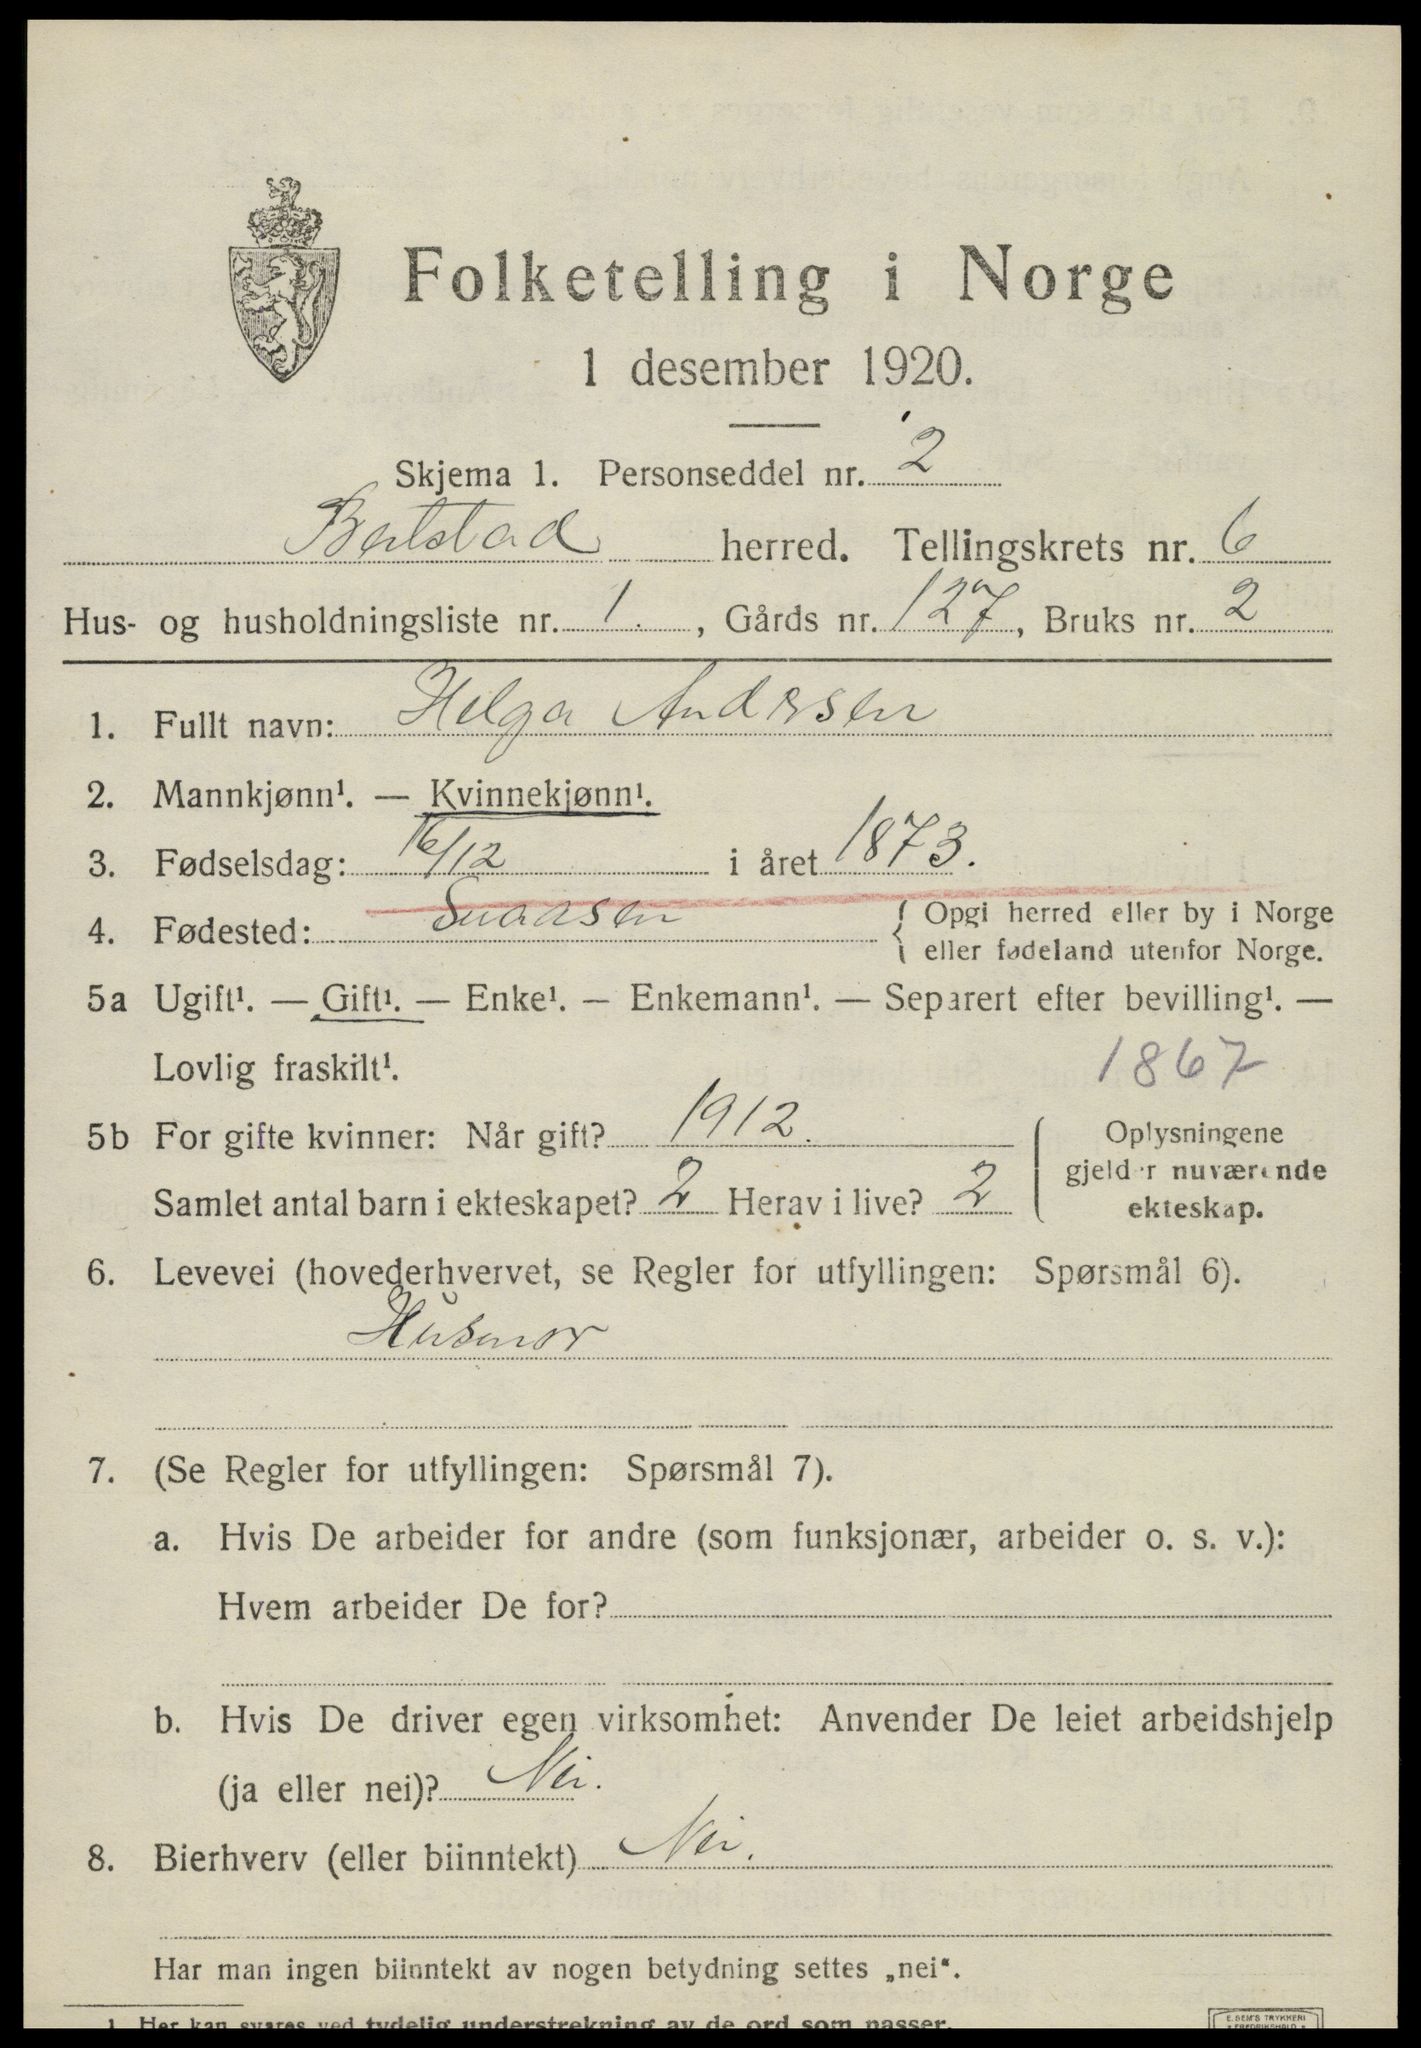 Folketelling i Norge
1 desember 1920.
Skjema 1. Personseddel nr. 2
Beitstad herred. Tellingskrets nr. 6
Hus- og husholdningsliste nr. 1., Gårds nr. 127, Bruks nr. 2
1. Fullt navn: Helga Andersen
2. Mannkjønn¹. — Kvinnekjønn¹.
3. Fødselsdag: 16/12 i året 1873.
4. Fødested: Snaasen { Opgi herred eller by i Norge
eller fødeland utenfor Norge.
5a Ugift¹. — Gift¹. — Enke¹. — Enkemann¹. — Separert efter bevilling¹. —
Lovlig fraskilt¹. 1867
5b For gifte kvinner: Når gift? 1912.
Samlet antal barn i ekteskapet? 2 Herav i live? 2
Oplysningene
gjelder nuværende
ekteskap.
6. Levevei (hovederhvervet, se Regler for utfyllingen: Spørsmål 6).
Husmor
7. (Se Regler for utfyllingen: Spørsmål 7).
a. Hvis De arbeider for andre (som funksjonær, arbeider o. s. v.):
Hvem arbeider De for?
b. Hvis De driver egen virksomhet: Anvender De leiet arbeidshjelp
(ja eller nei)? Nei.
8. Bierhverv (eller biinntekt) Nei.
Har man ingen biinntekt av nogen betydning settes „nei“.
1 Her kan svares ved tydelig understrekning av de ord som passer.
E. SEM'S TRYKKERI
FREDRIKSHALD